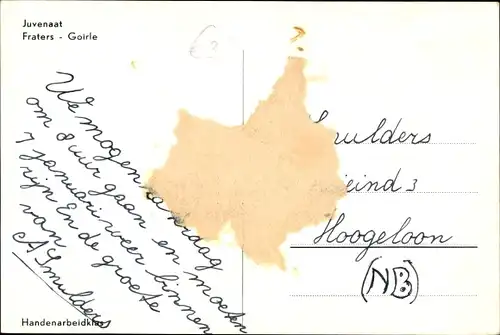 Juvenaat
Fraters - Goirle
We mogen
om 8 uur gaan en moeten
7 januari weer binnen
zijn En de groete
van
A Smulders
Smulders
eind 3
Hoogeloon
(NB)
Handenarbeidklas